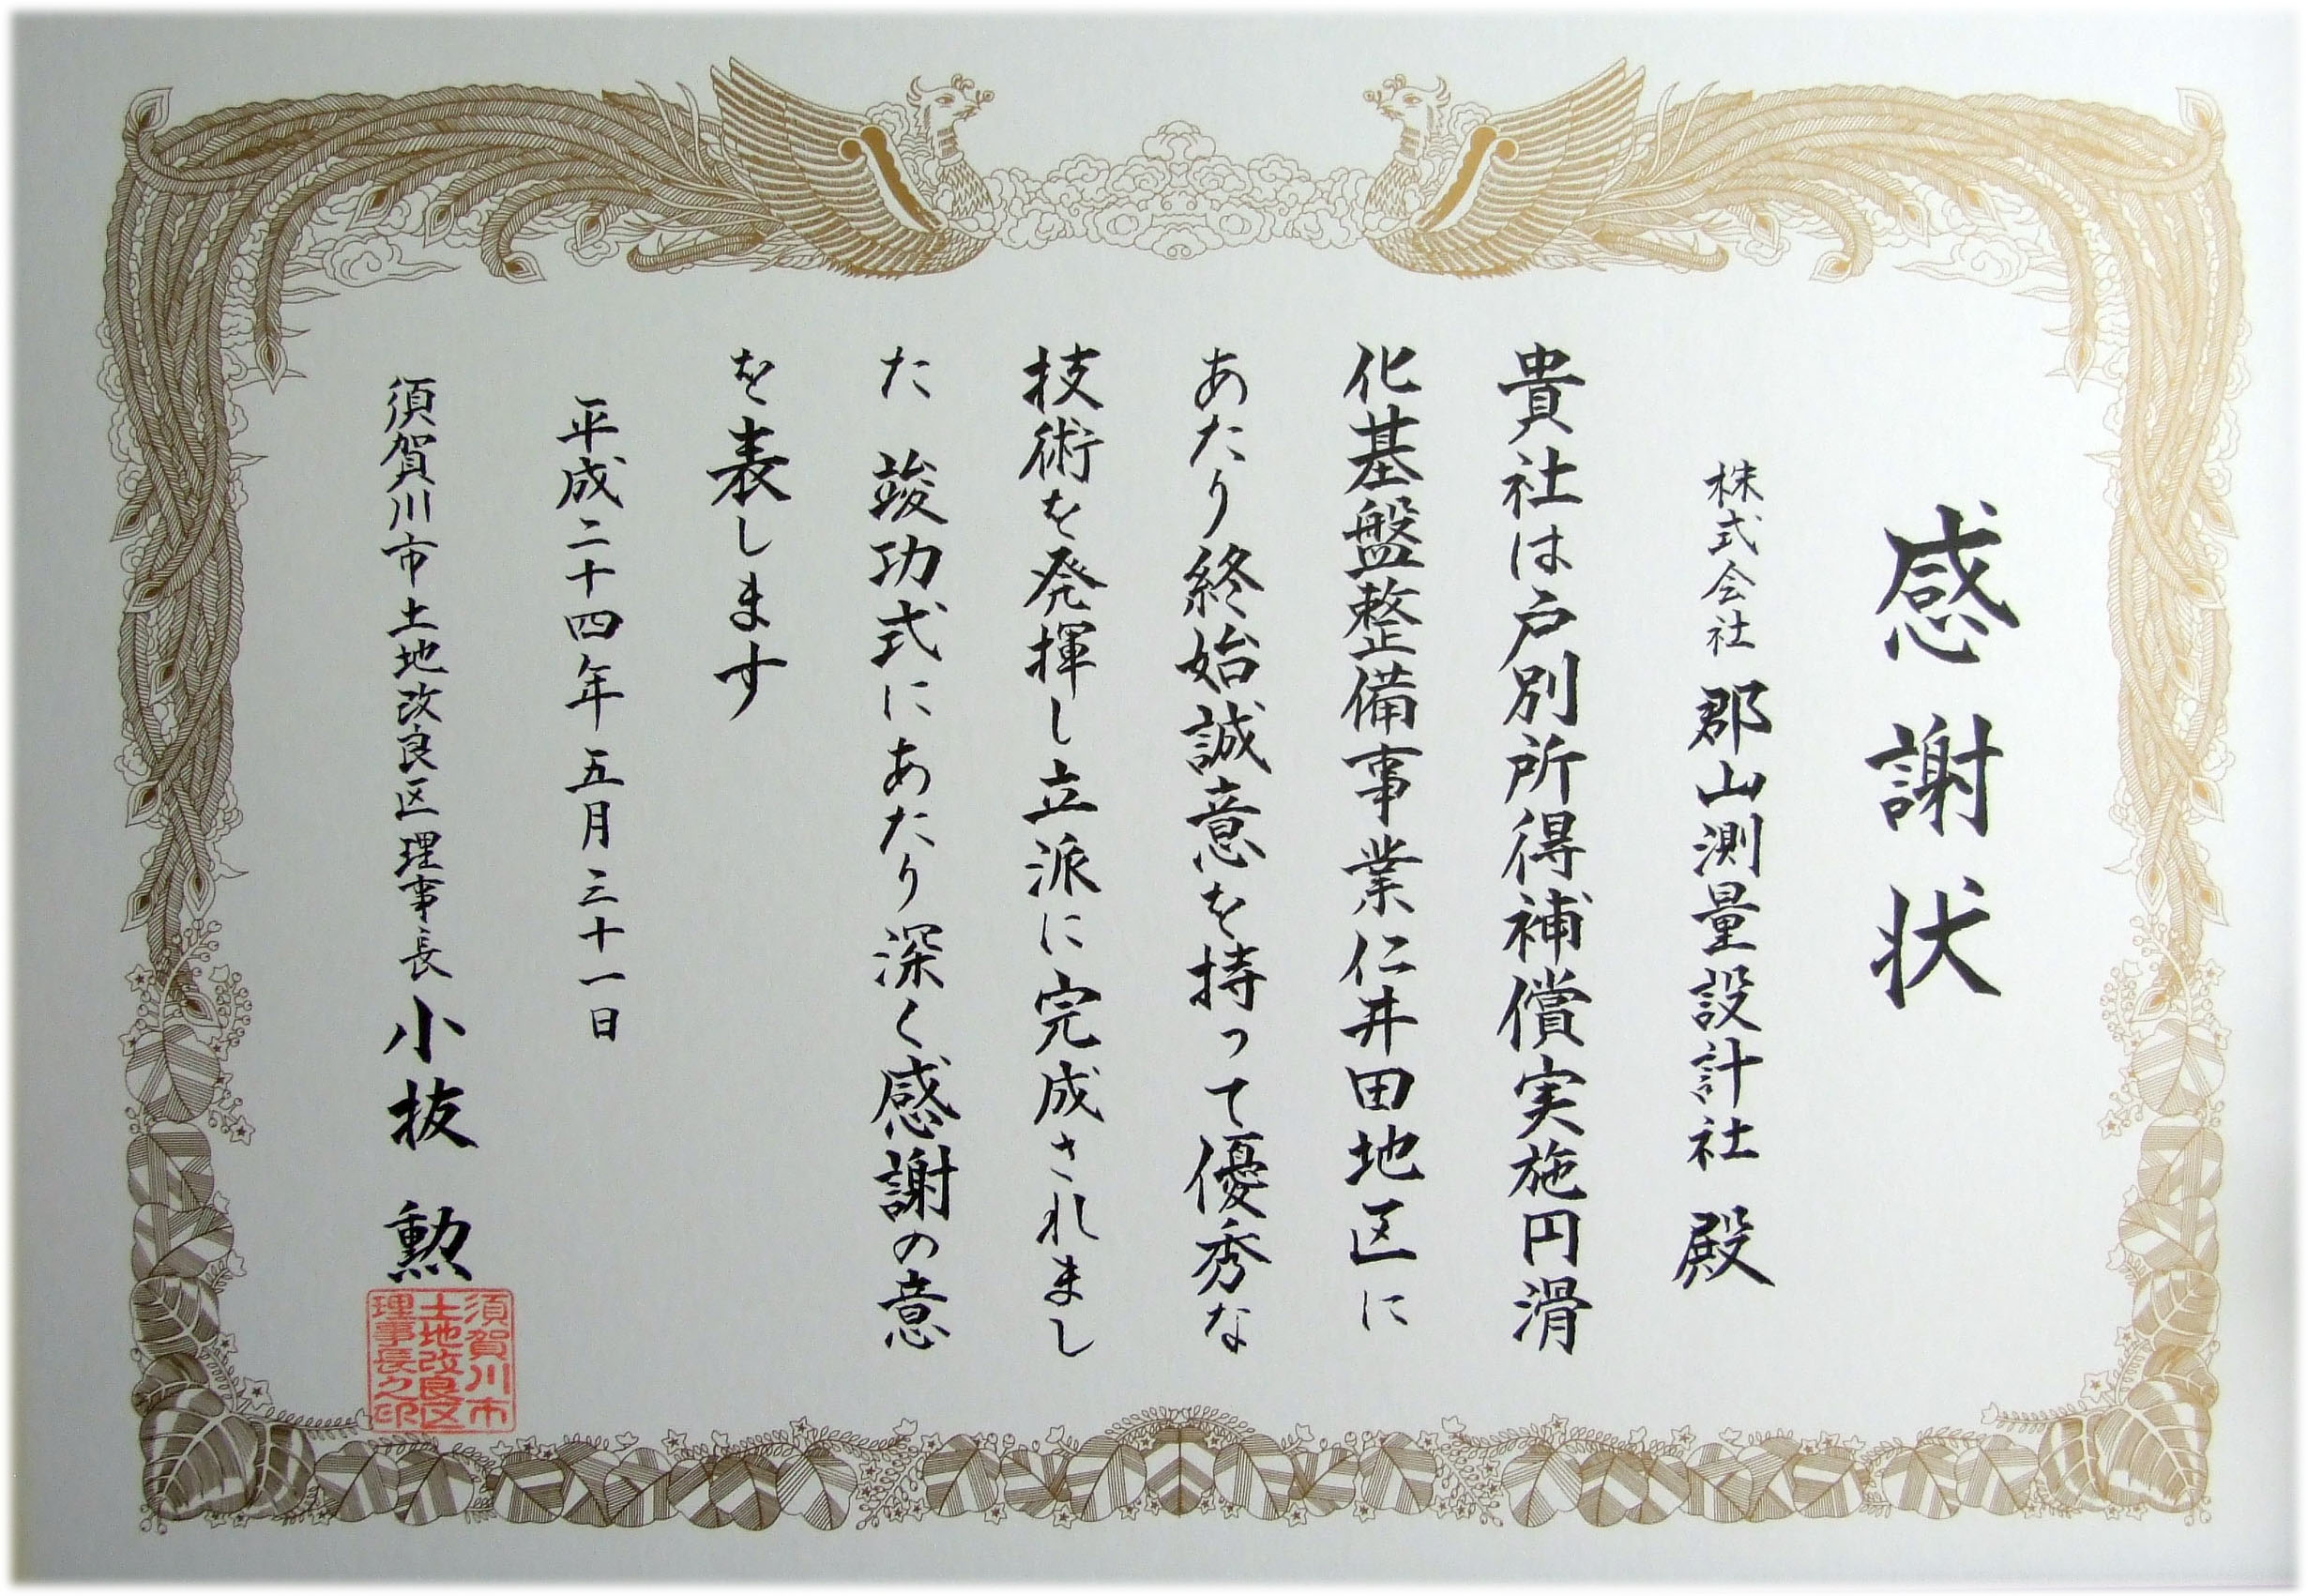 感謝状
株式会社 郡山測量設計社 殿
貴社は戸別所得補償実施円滑
化基盤整備事業仁井田地区に
あたり終始誠意を持って優秀な
技術を発揮し立派に完成されまし
た 竣功式にあたり深く感謝の意
を表します
平成二十四年五月三十一日
須賀川市土地改良区理事長 小抜 勲
須賀川市
土地改良区
理事長之印